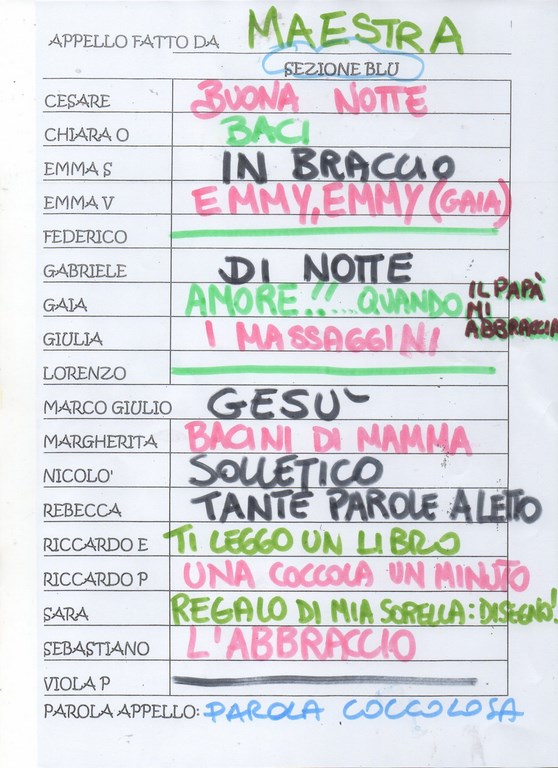 APPELLO FATTO DA MAESTRA
SEZIONE BLU
CESARE BUONA NOTTE
CHIARA O BACI
EMMA S IN BRACCIO
EMMA V EMMY, EMMY (GAIA)
FEDERICO
GABRIELE DI NOTTE
GAIA AMORE!!... QUANDO IL PAPÀ MI ABBRACCIA
GIULIA I MASSAGGINI
LORENZO
MARCO GIULIO GESU'
MARGHERITA BACINI DI MAMMA
NICOLO' SOLLETICO
REBECCA TANTE PAROLE A LETTO
RICCARDO E TI LEGGO UN LIBRO
RICCARDO P UNA COCCOLA UN MINUTO
SARA REGALO DI MIA SORELLA: DISEGNO!
SEBASTIANO L'ABBRACCIO
VIOLA P
PAROLA APPELLO: PAROLA COCCOLOSA